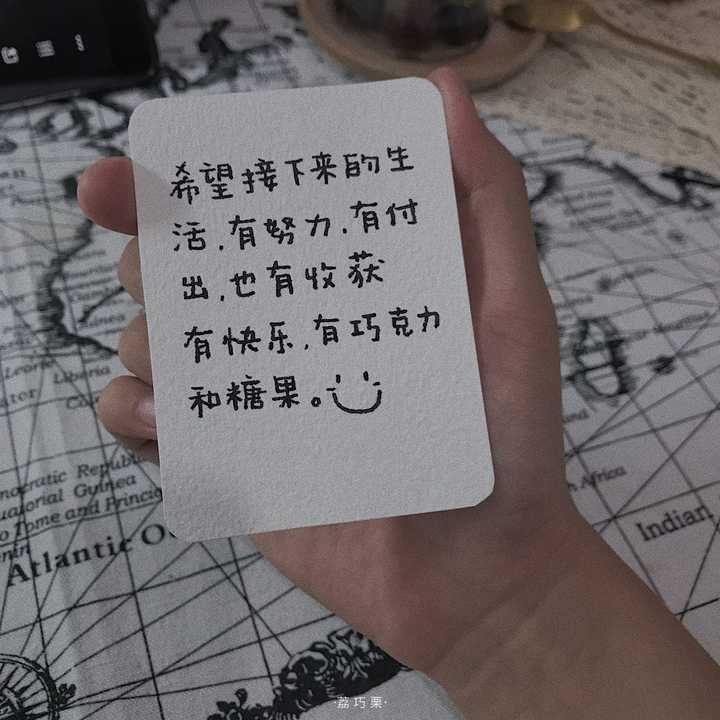 希望接下来的生
活,有努力,有付
出,也有收获
有快乐,有巧克力
和糖果。
Leone
Liberia
Democratic Republic
Equatorial Guinea
Sao Tome and Principe
Atlantic
Africa
Indian
·荔巧栗·